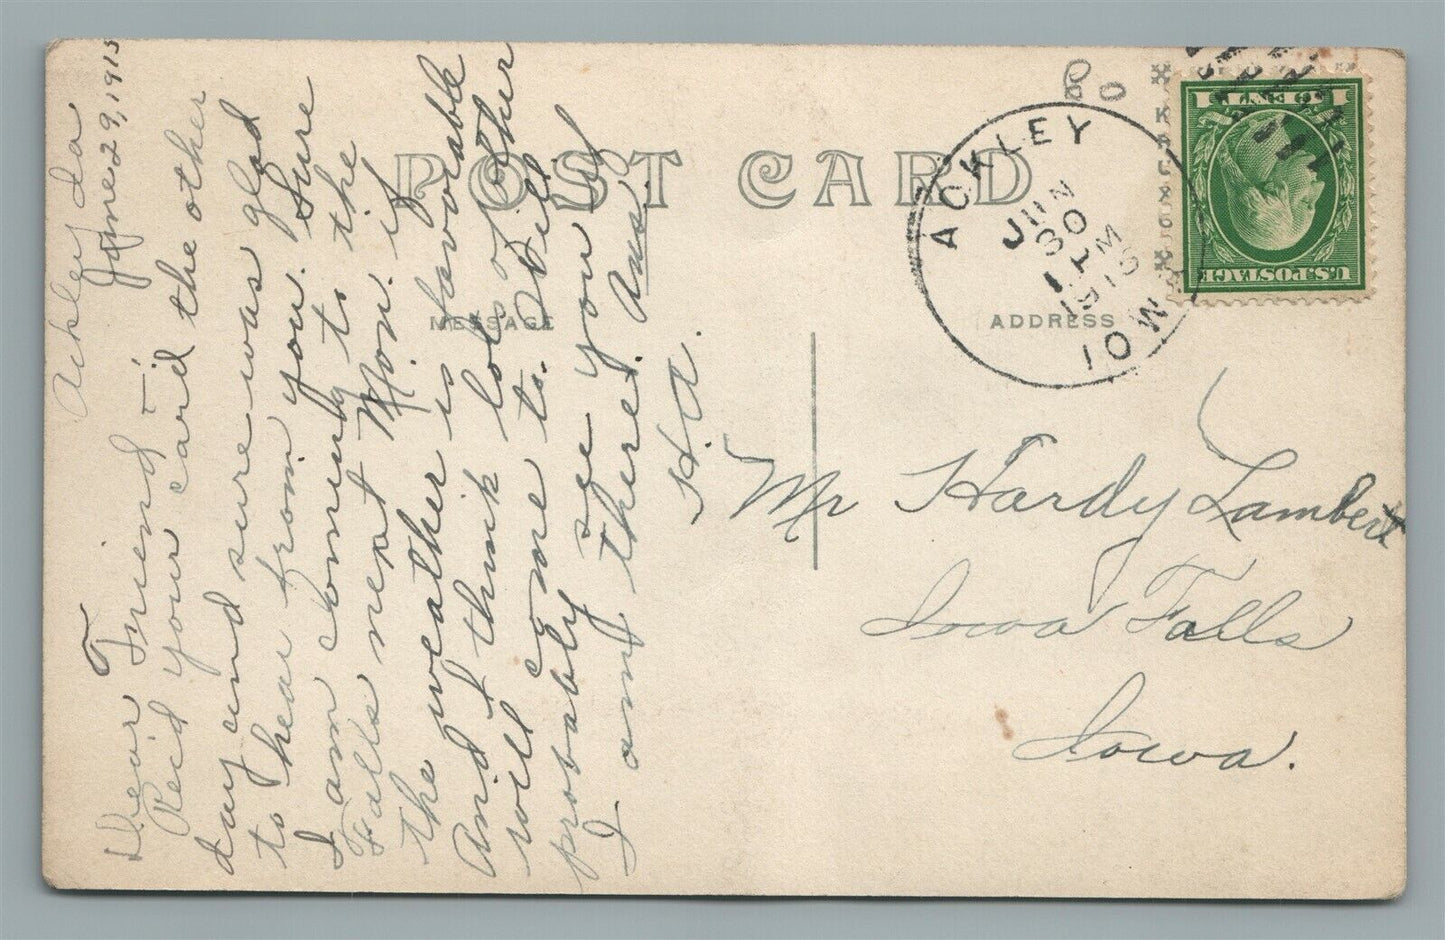 Ackley Ia
June 29, 1915
Dear Friend :-
Rec'd your card the other
day and sure was glad
to hear from you. Sure
I am coming to the
Falls next Mon. if
the weather is favorable
And I think lots of other
will come to. Will
probably see you if
I am there. Ans.
H. A.
POST CARD
MESSAGE
ADDRESS
ACKLEY
JUN
30
1 PM
1915
IOWA
U.S. POSTAGE
1 CENT 1
Mr Hardy Lambert
Iowa Falls
Iowa.